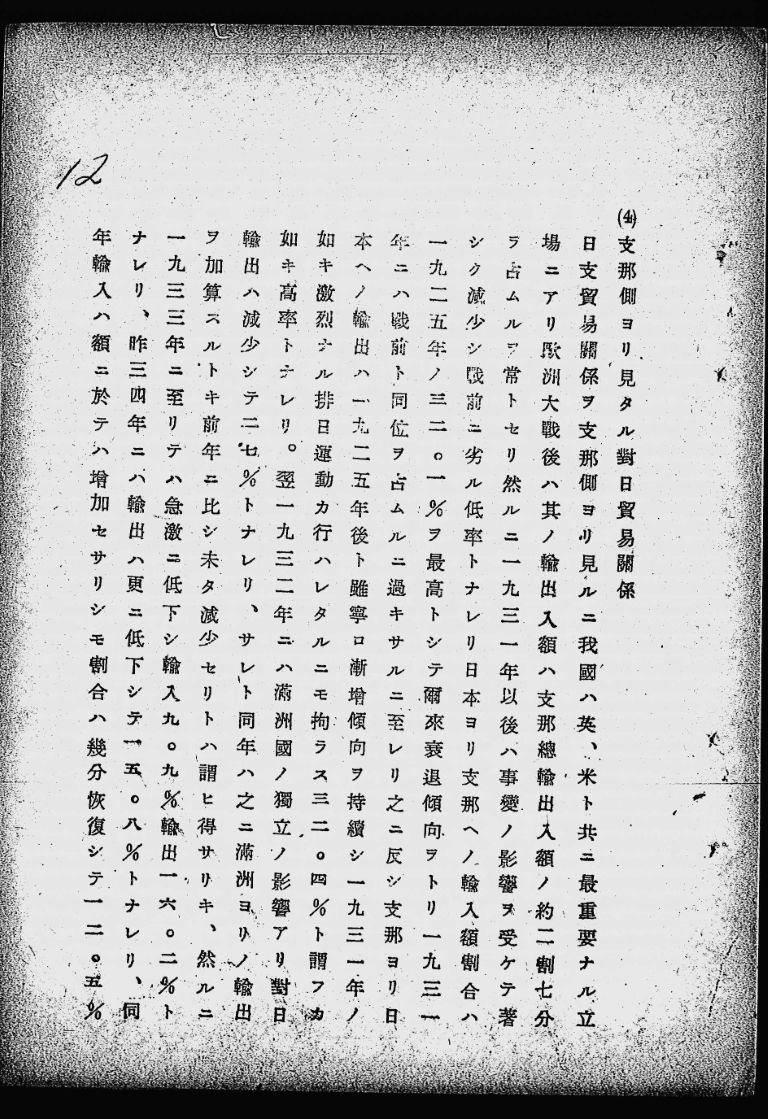 12
(4)支那側ヨリ見タル對日貿易關係
日支貿易關係ヲ支那側ヨリ見ルニ我國ハ英、米ト共ニ最重要ナル立
場ニアリ歐洲大戰後ハ其ノ輸出入額ハ支那總輸出入額ノ約二割七分
ヲ占ムルヲ常トセリ然ルニ一九三一年以後ハ事變ノ影響ヲ受ケテ著
シク減少シ戰前ニ劣ル低率トナレリ日本ヨリ支那ヘノ輸入額割合ハ
一九二五年ノ三二。一%ヲ最高トシテ爾來衰退傾向ヲトリ一九三一
年ニハ戰前ト同位ヲ占ムルニ過キサルニ至レリ之ニ反シ支那ヨリ日
本ヘノ輸出ハ一九二五年後ト雖寧ロ漸增傾向ヲ持續シ一九三一年ノ
如キ激烈ナル排日運動カ行ハレタルニモ拘ラス三二。四%ト謂フカ
如キ高率トナレリ。翌一九三二年ニハ滿洲國ノ獨立ノ影響アリ對日
輸出ハ減少シテ二七%トナレリ、サレト同年ハ之ニ滿洲ヨリノ輸出
ヲ加算スルトキ前年ニ比シ未タ減少セリトハ謂ヒ得サリキ、然ルニ
一九三三年ニ至リテハ急激ニ低下シ輸入九。九%輸出一六。二%ト
ナレリ、昨三四年ニハ輸出ハ更ニ低下シテ一五。八%トナレリ、同
年輸入ハ額ニ於テハ增加セサリシモ割合ハ幾分恢復シテ一二。五%